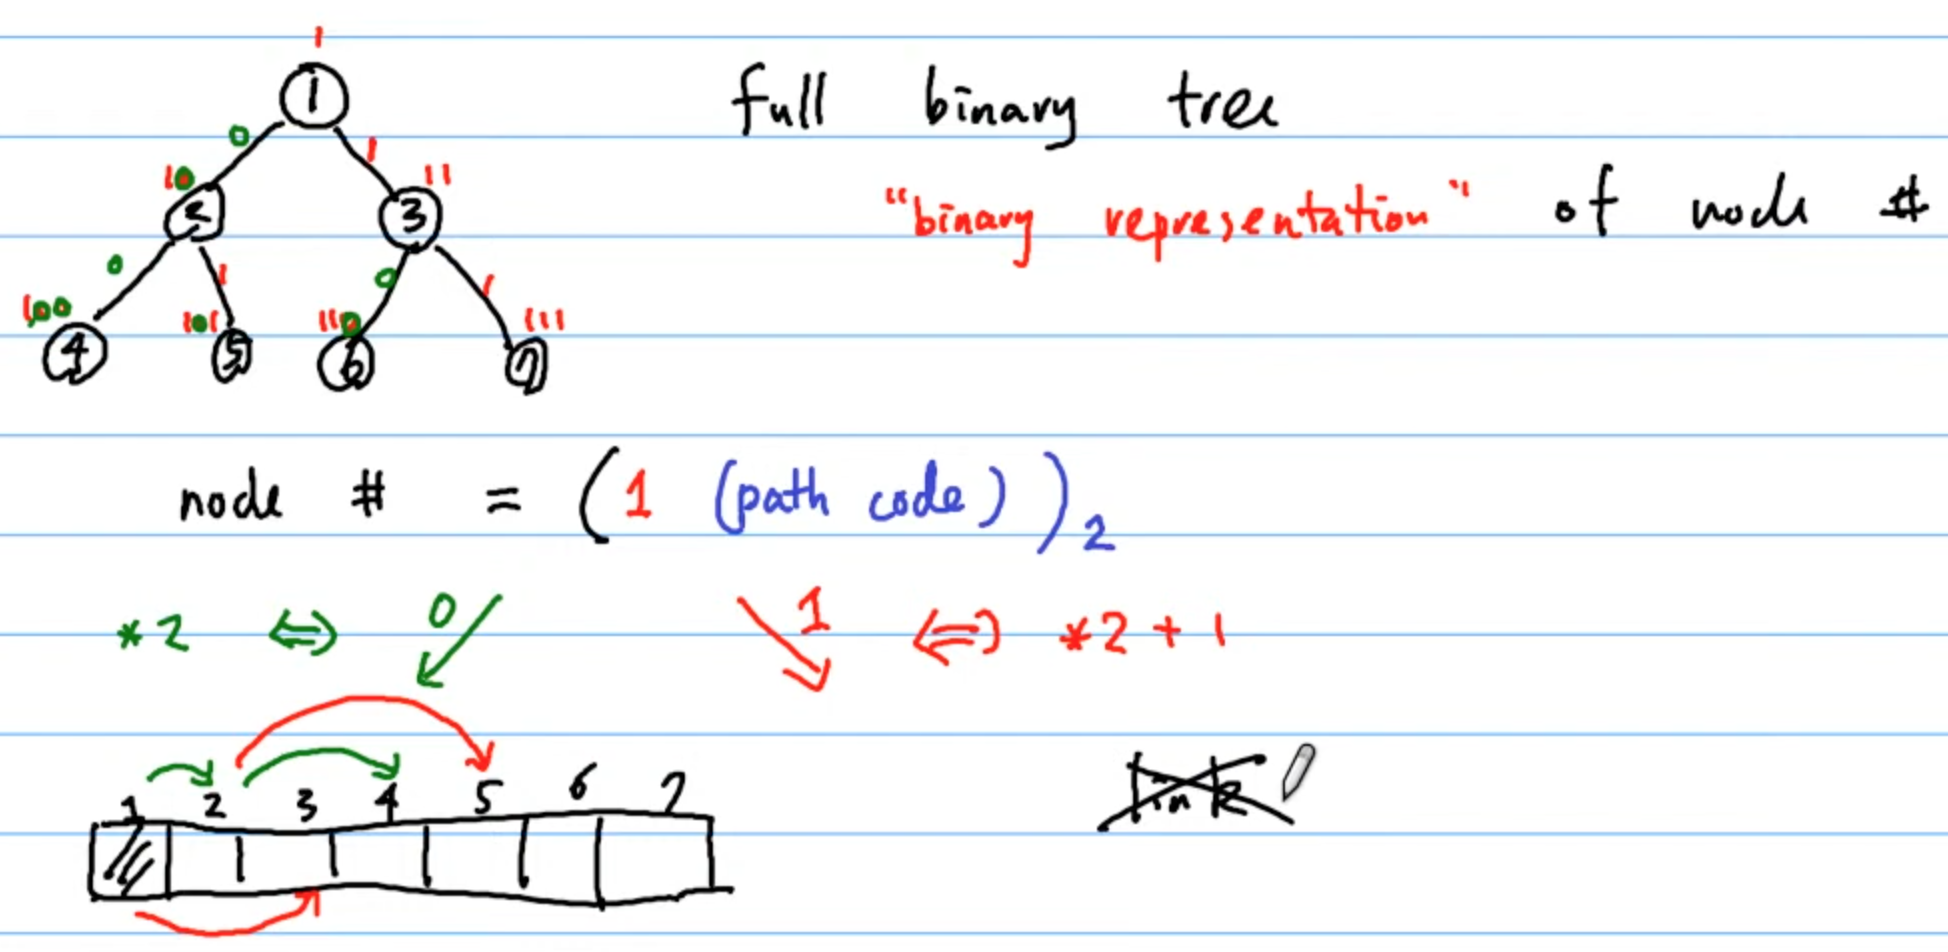 1
1
0 1
10 11
2 3
0 1 0 1
100 101 110 111
4 5 6 7
full binary tree
"binary representation" of node #
node # = (1 (path code))₂
*2 ⇔ 0 ↙ ↘ 1 ⇔ *2 + 1
1 2 3 4 5 6 7
link